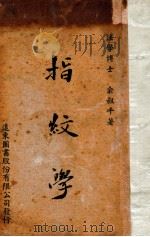 法學博士 俞叔平著
指紋學
遠東圖書股份有限公司發行